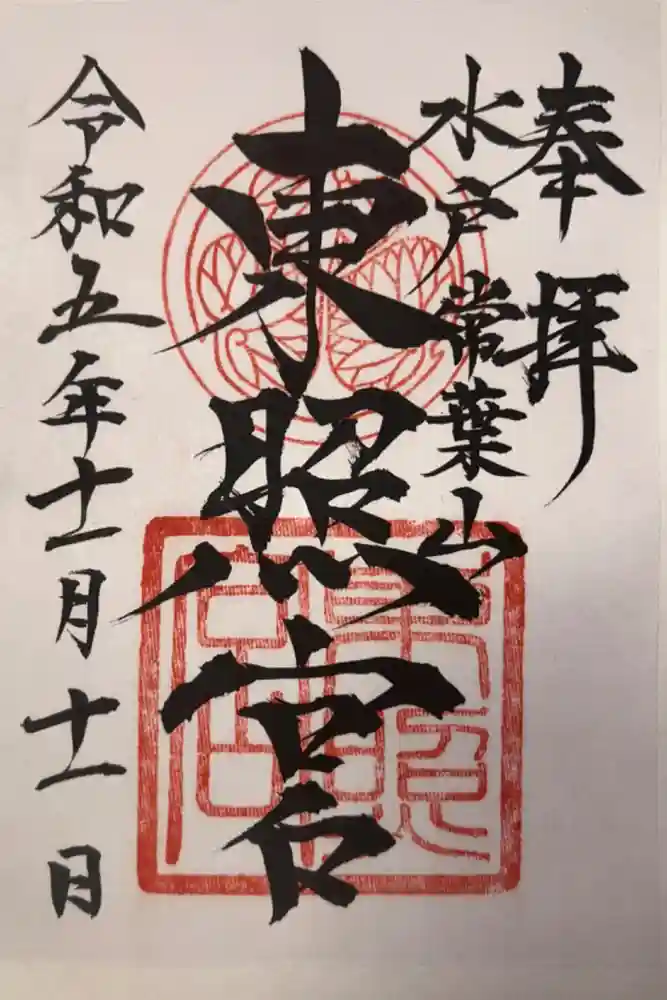 奉拝
水戸常葉山
東照宮
令和五年十一月十一日